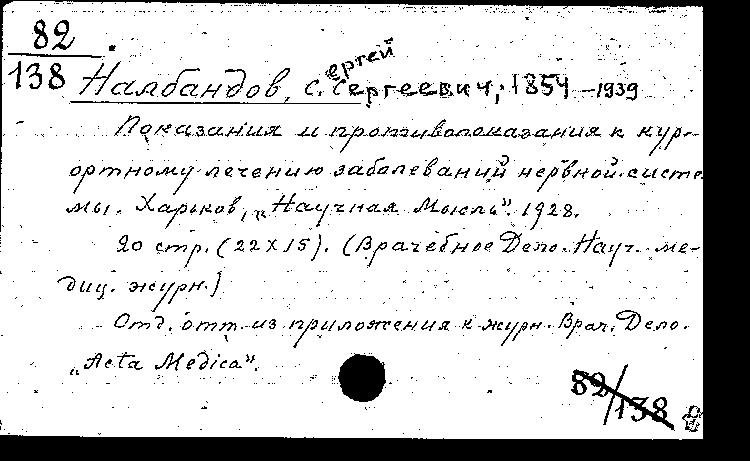 82
138 Налбандов, Сергей Сергеевич, 1854 – 1939
Показания и противопоказания к кур-
ортному лечению заболеваний нервной систе
мы. Харьков, „Научная Мысль". 1928.
20 стр. (22X15). (Врачебное Дело. Науч. ме-
диц. журн.)
Отд. отт. из приложения к журн. Врач. Дело.
„Acta Medica".
82/138